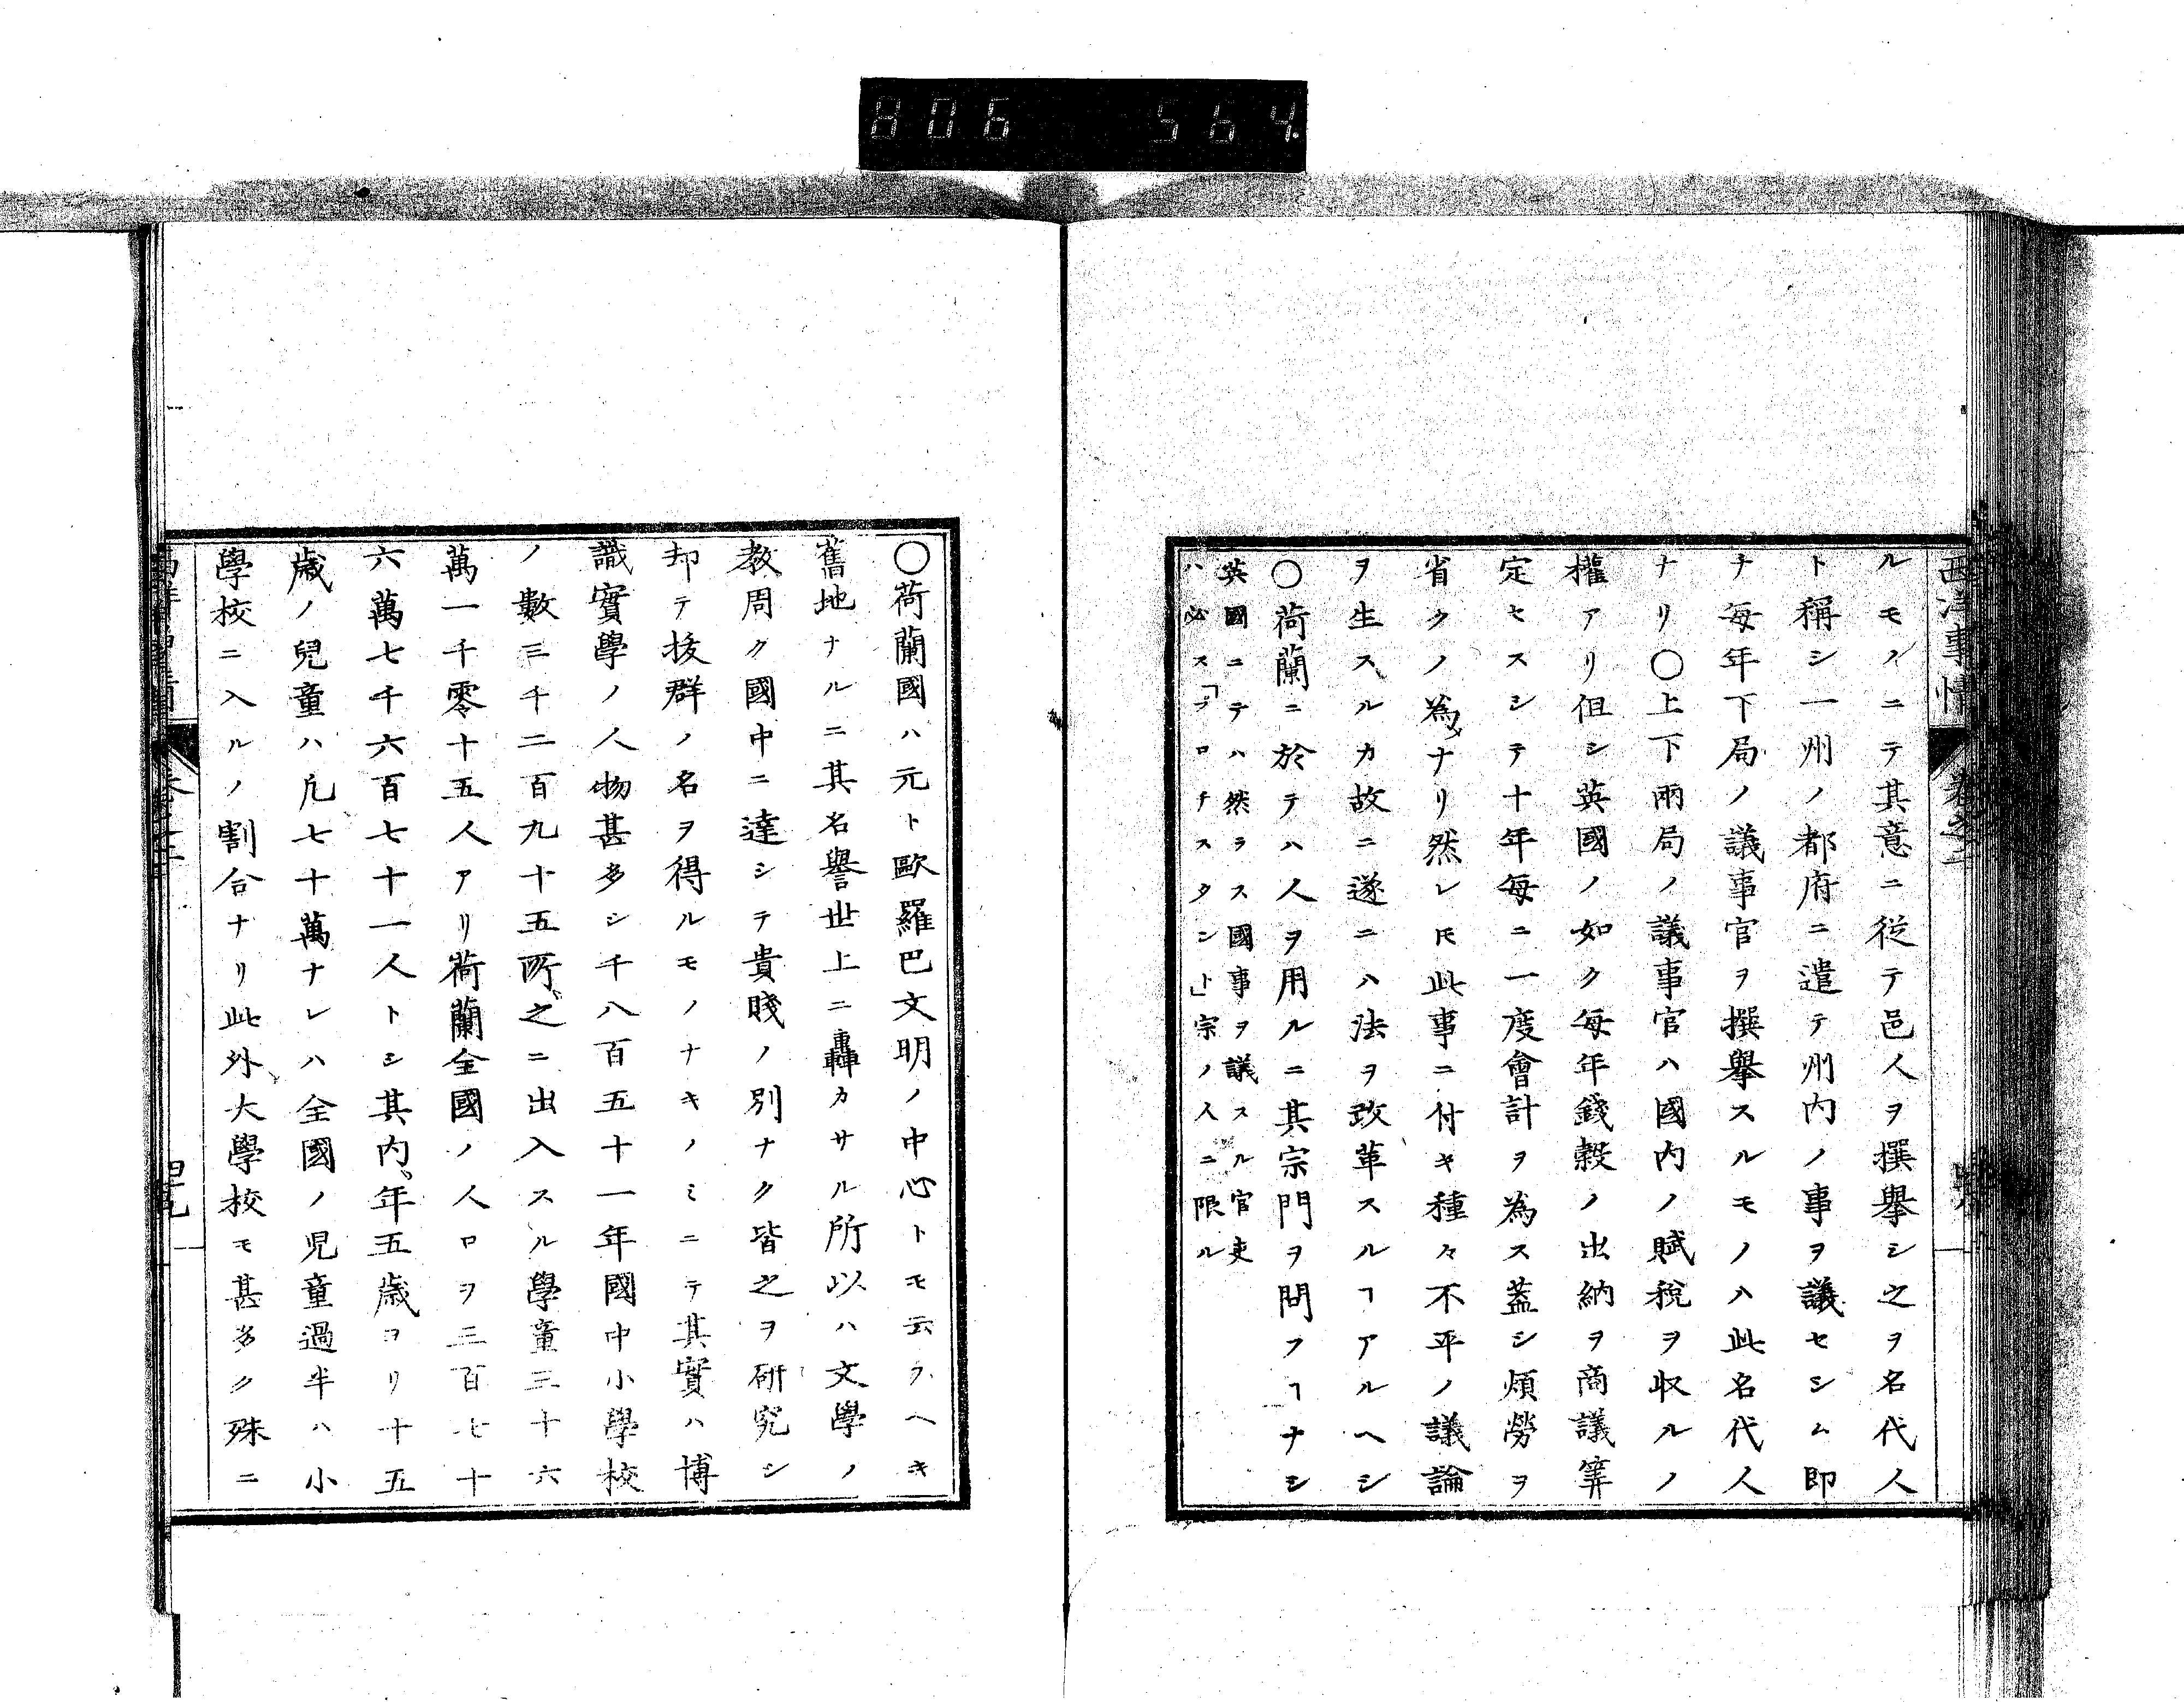 806 564.
西洋事情 卷之二
ルモノニテ其意ニ従テ邑人ヲ撰擧シ之ヲ名代人
ト稱シ一州ノ都府ニ遣テ州内ノ事ヲ議セシム即
チ毎年下局ノ議事官ヲ撰擧スルモノハ此名代人
ナリ〇上下兩局ノ議事官ハ國内ノ賦税ヲ収ルノ
權アリ但シ英國ノ如ク毎年錢穀ノ出納ヲ商議筭
定セスシテ十年毎ニ一度會計ヲ為ス蓋シ煩勞ヲ
省クノ為ナリ然レ𪜈此事ニ付キ種々不平ノ議論
ヲ生スルカ故ニ遂ニハ法ヲ改革スルヿアルヘシ
〇荷蘭ニ於テハ人ヲ用ルニ其宗門ヲ問フヿナシ
英國ニテハ然ラス國事ヲ議スル官吏
ハ必ス「プロテスタント」宗ノ人ニ限ル
〇荷蘭國ハ元ト歐羅巴文明ノ中心トモ云フヘキ
舊地ナルニ其名譽世上ニ轟カサル所以ハ文學ノ
教周ク國中ニ達シテ貴賤ノ別ナク皆之ヲ研究シ
却テ抜群ノ名ヲ得ルモノナキノミニテ其實ハ博
識實學ノ人物甚多シ千八百五十一年國中小學校
ノ數三千二百九十五所之ニ出入スル學童三十六
萬一千零十五人アリ荷蘭全國ノ人口ヲ三百七十
六萬七千六百七十一人トシ其内年五歳ヨリ十五
歳ノ兒童ハ凢七十萬ナレハ全國ノ児童過半ハ小
學校ニ入ルノ割合ナリ此外大學校モ甚多ク殊ニ